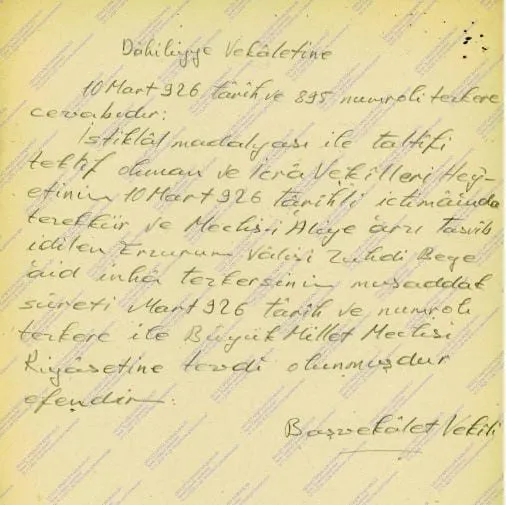 Dâhiliyye Vekâletine
10 Mart 926 târih ve 895 numrolı tezkere
cevabıdır:
İstiklâl madalyası ile taltifi
teklif olunan ve İcrâ Vekilleri Hey-
etinin 10 Mart 926 târihli ictimâında
tezekkür ve Meclis-i Âliye arzı tasvib
idilen Erzurum Vâlisi Zühdi Beye
âid inhâ tezkersinin musaddak
sûreti Mart 926 târih ve numrolı
tezkere ile Büyük Millet Meclisi
Riyâsetine tevdi olunmuşdur
efendim.
Başvekâlet Vekili